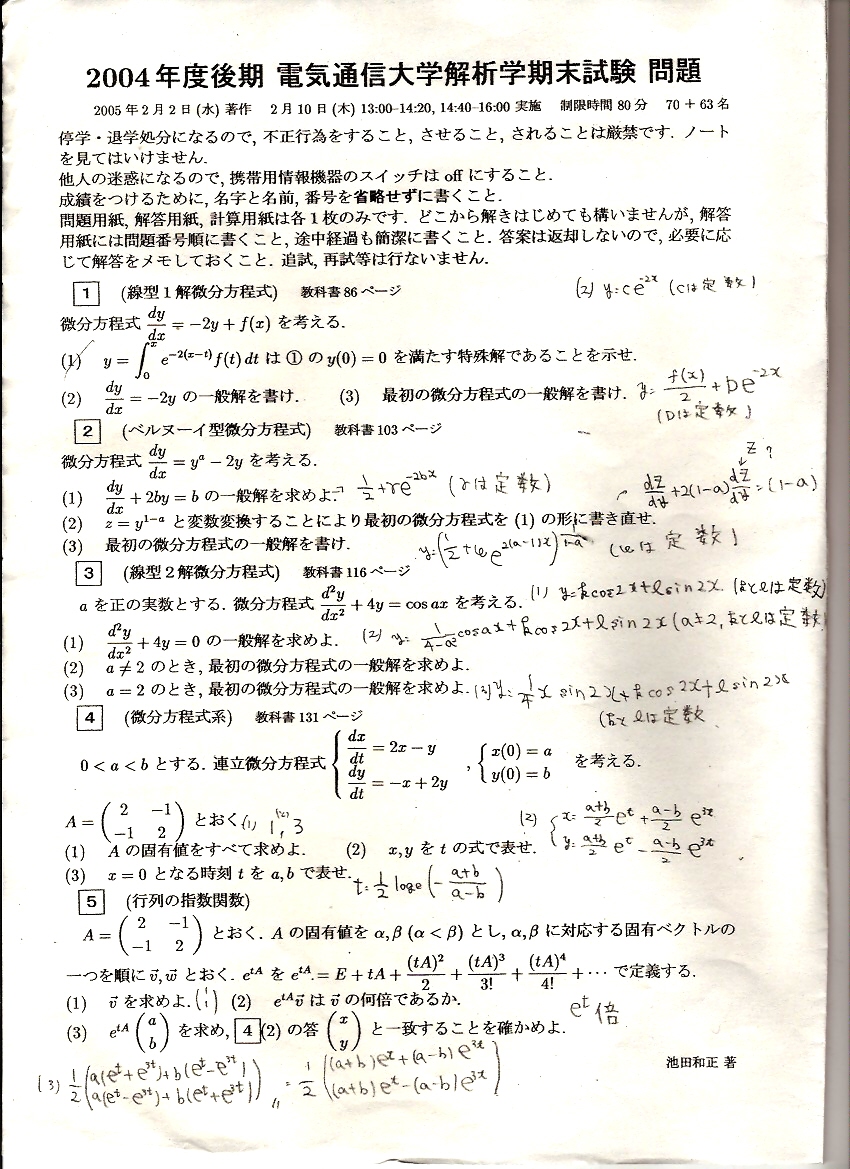 2004年度後期 電気通信大学解析学期末試験 問題
2005年2月2日(水) 著作 2月10日(木) 13:00–14:20, 14:40–16:00 実施 制限時間 80分 70+63名
停学・退学処分になるので, 不正行為をすること, させること, されることは厳禁です. ノート
を見てはいけません.
他人の迷惑になるので, 携帯用情報機器のスイッチは off にすること.
成績をつけるために, 名字と名前, 番号を省略せずに書くこと.
問題用紙, 解答用紙, 計算用紙は各1枚のみです. どこから解きはじめても構いませんが, 解答
用紙には問題番号順に書くこと, 途中経過も簡潔に書くこと. 答案は返却しないので, 必要に応
じて解答をメモしておくこと. 追試, 再試等は行ないません.
1 (線型1解微分方程式) 教科書86ページ (2) y=ce^{-2x} (cは定数)
微分方程式 dy/dx = -2y + f(x) を考える.
(1) y = ∫_0^x e^{-2(x-t)} f(t) dt は ① の y(0) = 0 を満たす特殊解であることを示せ.
(2) dy/dx = -2y の一般解を書け. (3) 最初の微分方程式の一般解を書け. y= f(x)/2 + De^{-2x}
(Dは定数)
2 (ベルヌーイ型微分方程式) 教科書103ページ
微分方程式 dy/dx = y^a - 2y を考える. z?
(1) dy/dx + 2by = b の一般解を求めよ. 1/2+re^{-2bx} (rは定数) dz/dy+2(1-a)dz/dy=(1-a)
(2) z = y^{1-a} と変数変換することにより最初の微分方程式を (1) の形に書き直せ.
(3) 最初の微分方程式の一般解を書け. y=(1/2+ke^{2(a-1)x})^{1/(1-a)} (kは定数)
3 (線型2解微分方程式) 教科書116ページ
a を正の実数とする. 微分方程式 d²y/dx² + 4y = cos ax を考える. (1) y=kcos2x+lsin2x. (kとlは定数)
(1) d²y/dx² + 4y = 0 の一般解を求めよ. (2) y= 1/(4-a²) cosax+kcos2x+lsin2x (a≠2, kとlは定数)
(2) a ≠ 2 のとき, 最初の微分方程式の一般解を求めよ.
(3) a = 2 のとき, 最初の微分方程式の一般解を求めよ. (3) y= 1/4 x sin2x+kcos2x+lsin2x
(kとlは定数
4 (微分方程式系) 教科書131ページ
0 < a < b とする. 連立微分方程式 { dx/dt = 2x - y, dy/dt = -x + 2y , { x(0) = a, y(0) = b を考える.
A = ( 2 -1 / -1 2 ) とおく. (1) 1, 3 (2) { x= (a+b)/2 e^t + (a-b)/2 e^{3t}
y= (a+b)/2 e^t - (a-b)/2 e^{3t}
(1) A の固有値をすべて求めよ. (2) x, y を t の式で表せ.
(3) x = 0 となる時刻 t を a, b で表せ. t= 1/2 loge(- (a+b)/(a-b))
5 (行列の指数関数)
A = ( 2 -1 / -1 2 ) とおく. A の固有値を α, β (α < β) とし, α, β に対応する固有ベクトルの
一つを順に v⃗, w⃗ とおく. e^{tA} を e^{tA} = E + tA + (tA)²/2 + (tA)³/3! + (tA)⁴/4! + ⋯ で定義する.
(1) v⃗ を求めよ. (1 / 1) (2) e^{tA}v⃗ は v⃗ の何倍であるか. e^t 倍
(3) e^{tA} ( a / b ) を求め, 4 (2) の答 ( x / y ) と一致することを確かめよ.
池田和正 著
(3) 1/2 ( a(e^t+e^{3t})+b(e^t-e^{3t}) / a(e^t-e^{3t})+b(e^t+e^{3t}) ) = 1/2 ( (a+b)e^t+(a-b)e^{3t} / (a+b)e^t-(a-b)e^{3t} )